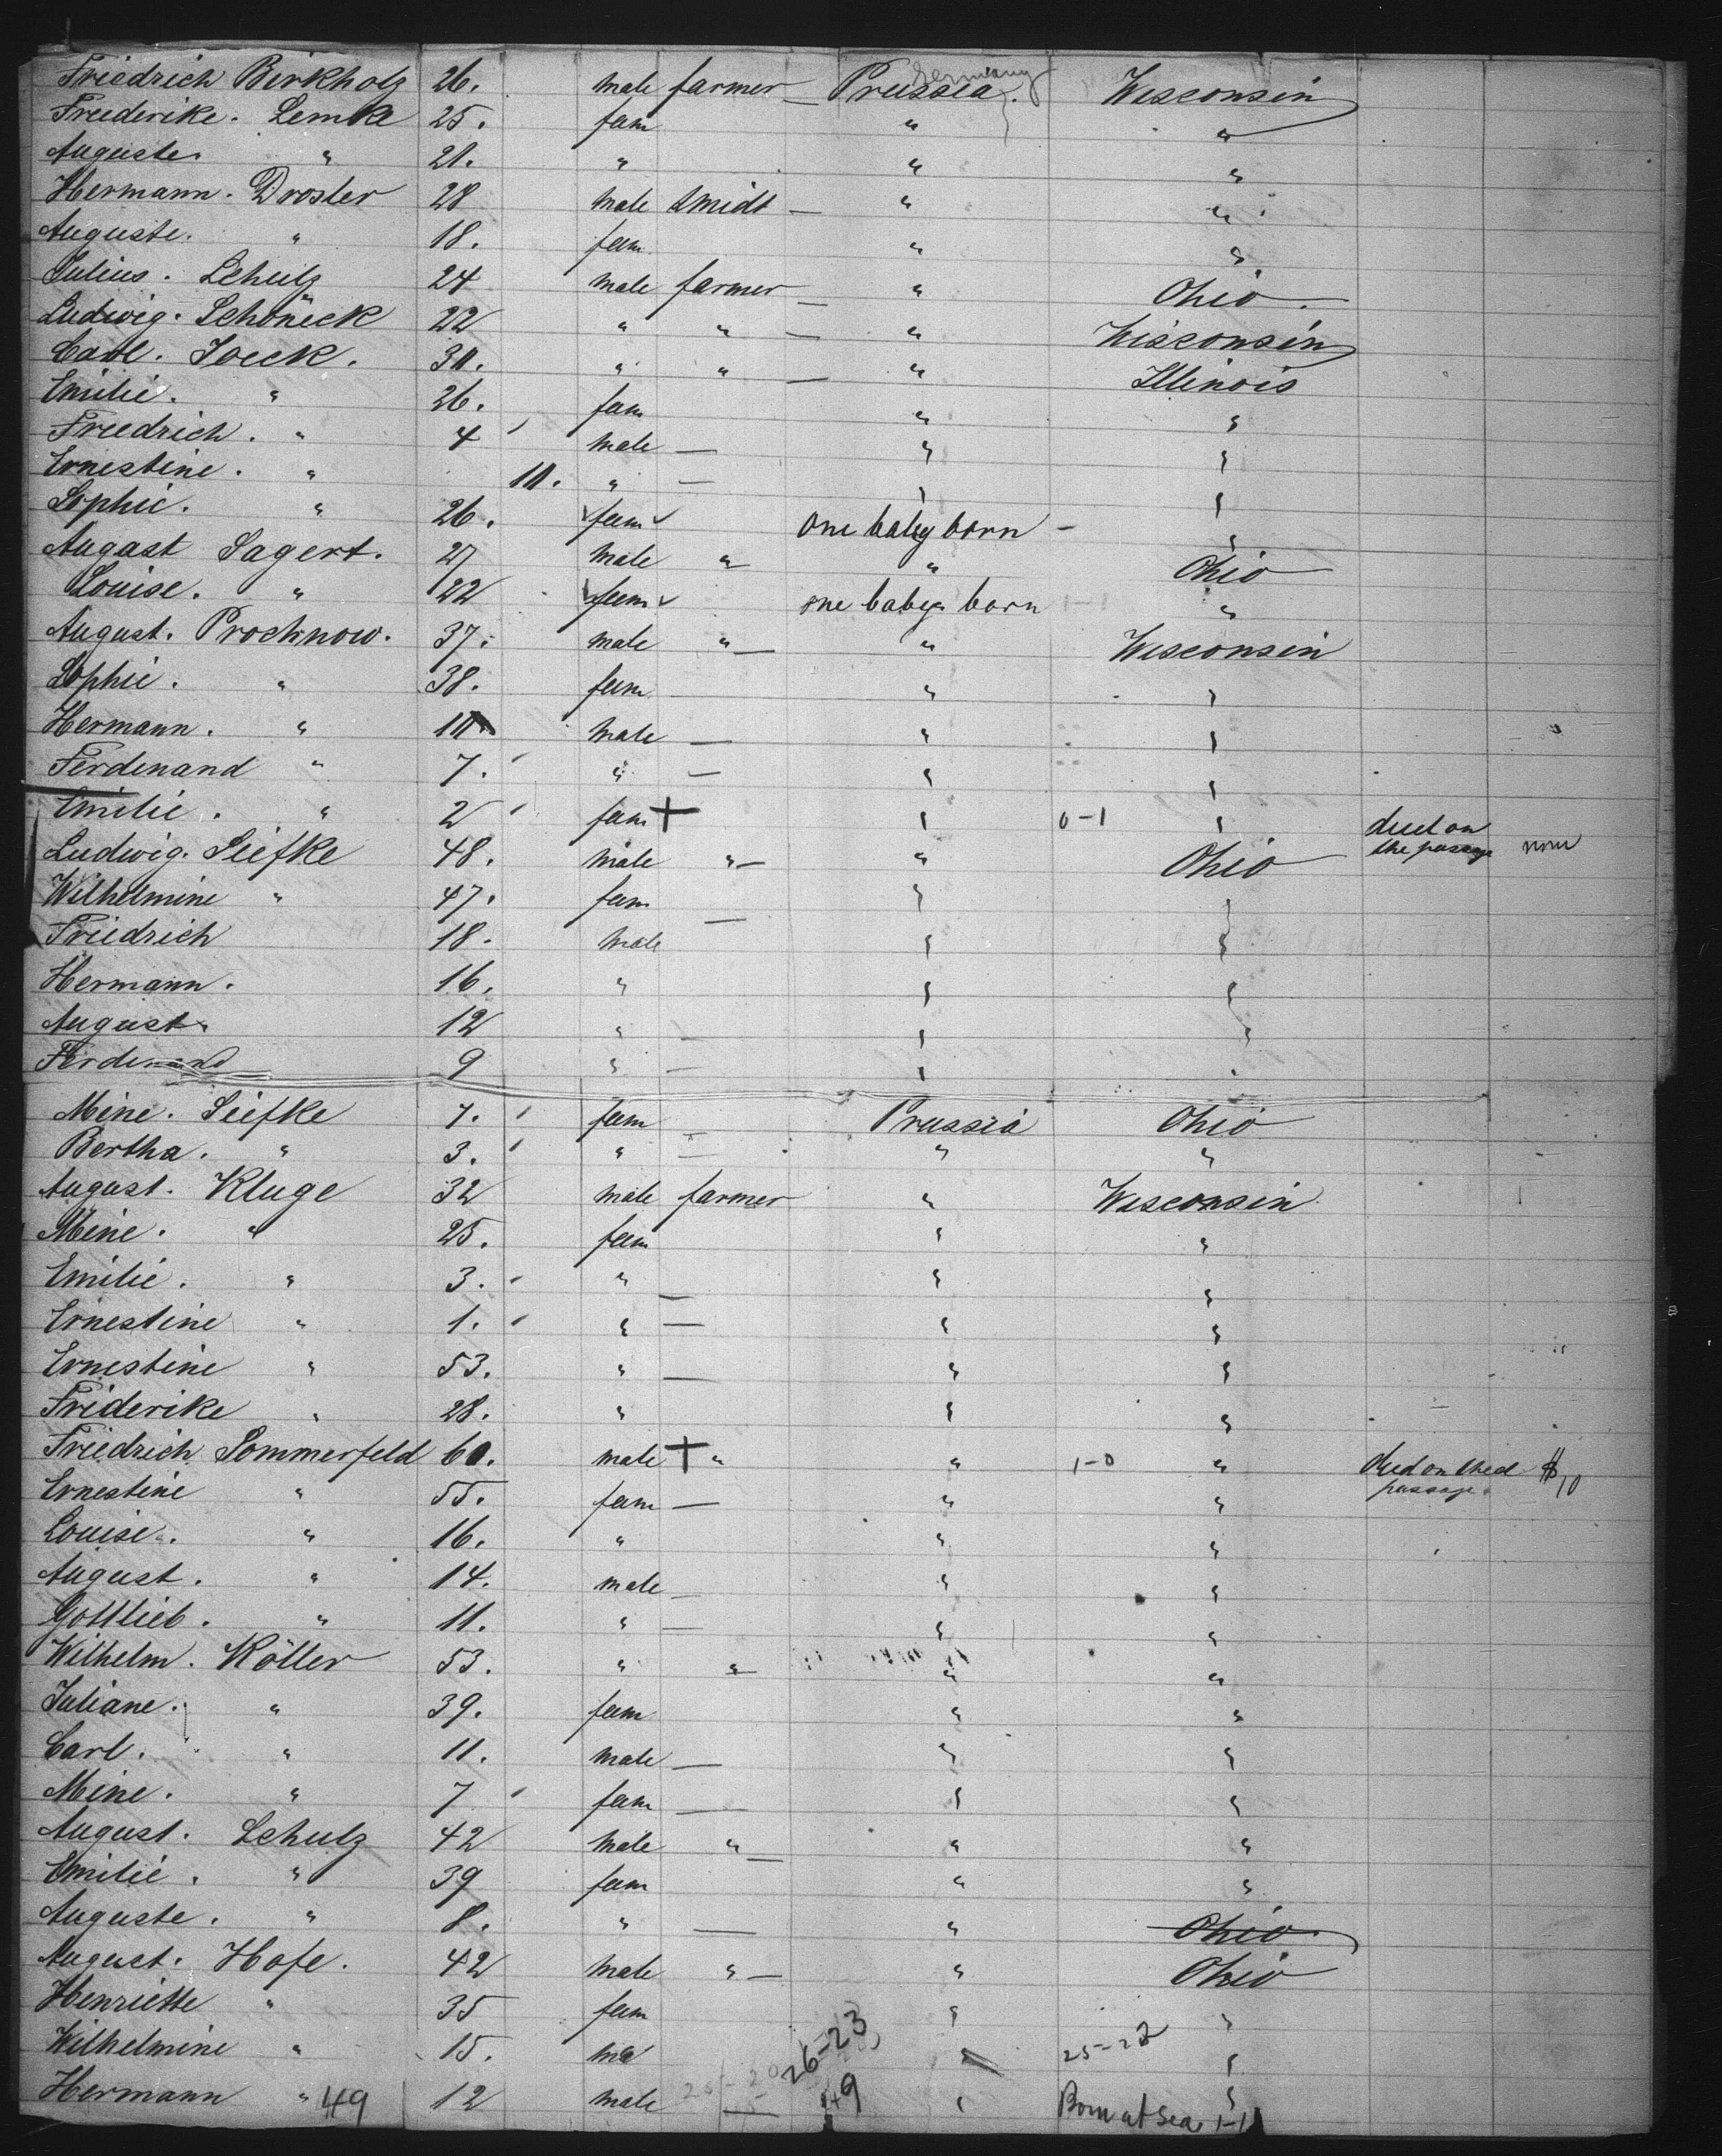 Friedrich Birkholz 26. male farmer — Prussia. Germany Wisconsin
Freederike. Lemke 25. fem " "
Auguste. " 21. " " "
Hermann. Droster 28 male Smidt — " "
Auguste. " 18. fem " "
Julius. Schulz 24 male farmer — " Ohio.
Ludwig. Schöneck 22 " " — " Wisconsin
Carl. Joeck. 30. " " — " Illinois
Emilie. " 26. fem " "
Freedrich. " 4 male — " "
Ernestine. " 10. " — " "
Sophie. " 26. fem one baby born — "
August Sagert. 27 male " " Ohio
Louise. " 22 fem one baby born 1-1 "
August. Prochnow. 37. male " — " Wisconsin
Sophie. " 38. fem " "
Hermann. " 10 male — " "
Ferdenand " 7. " — " "
Emilie. " 2 fem + " 0-1 " died on
Ludwig. Siefke 48. male " — " Ohio the passage none
Wilhelmine " 47. fem " "
Friedrich 18. male — " "
Hermann. 16. " " "
August. 12 " — " "
Ferdenand 9 " — " "
Mine. Siefke 7. fem — Prussia Ohio
Bertha. " 3. " — " "
August. Kluge 32 male farmer " Wisconsin
Mine. " 25. fem " "
Emilie. " 3. " — " "
Ernestine " 1. " — " "
Ernestine " 53. " — " "
Friderike " 28. " " "
Friedrich Sommerfeld 60. male + " " 1-0 " died on the passage. $10
Ernestine " 55. fem — " "
Louise. " 16. " " "
August. " 14. male — " "
Gottlieb. " 11. " — " "
Wilhelm. Köller 53. " " " "
Juliane. " 39. fem " "
Carl. " 11. male — " "
Mine. " 7 fem — " "
August. Schulz 42 male " — " "
Emilie. " 39 fem " "
Auguste. " 8. " — " Ohio
August. Hofe. 42 male " — " Ohio
Henriette " 35 fem " "
Wilhelmine " 15. ma 26-23 " 25-22 "
Hermann " 49 12 male — 49 " "
Born at Sea 1-1